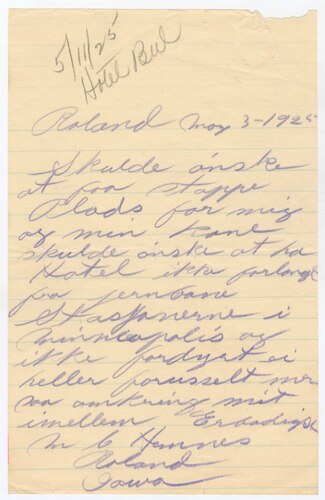 5/11/25
Hotel Bill
Roland May 3-1925
Skulde önske
at faa stoppe
Plads for mig
og min Kone
skulde önske at ha
Hotel ikke for langt
fra jernbane
Stasjonerne i
Minneapolis og
ikke fordyrt ei
heller forusselt mer
saa omkring mit
imellem Erbödigst
M C Hennes
Roland
Iowa